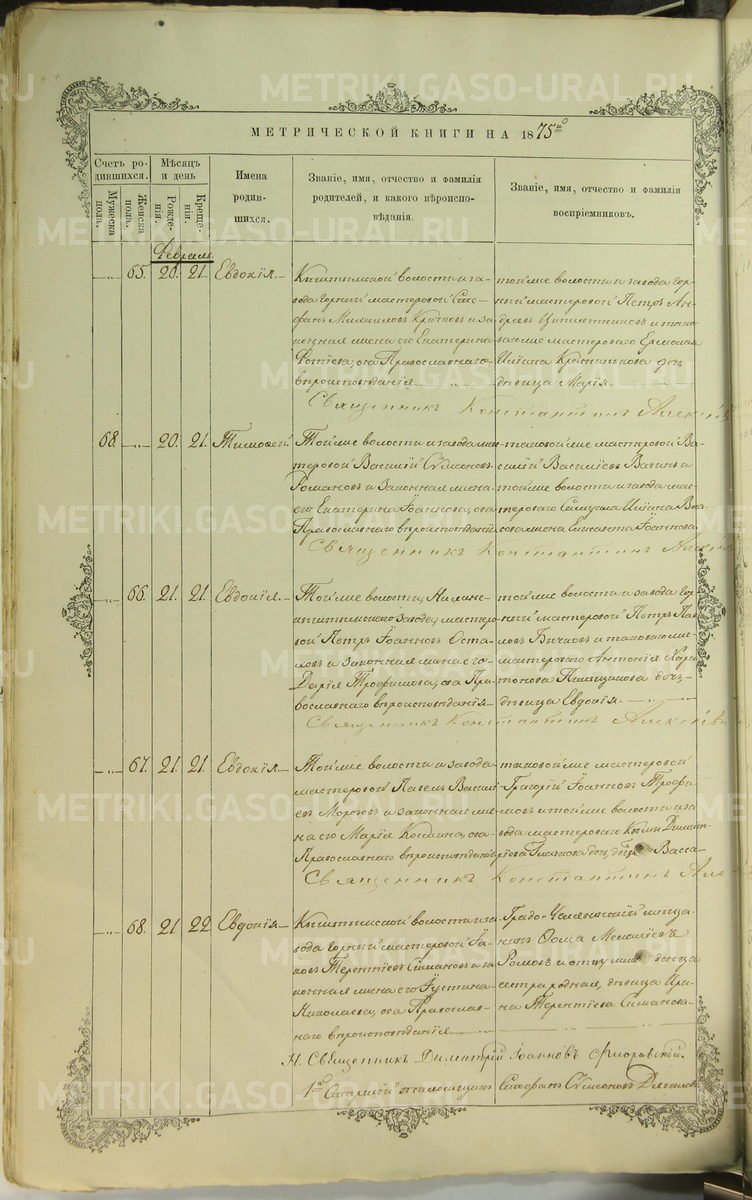 МЕТРИЧЕСКОЙ КНИГИ НА 1875го
Счетъ родившихся.
Мужеска пола.
Женска пола.
Мѣсяцъ и день
Рожденія.
Крещенія.
Имена родившихся.
Званіе, имя, отчество и фамилія родителей, и какого вѣроисповѣданія.
Званіе, имя, отчество и фамилія воспріемниковъ.
Февраль
65. 20. 21. Евдокія
Кыштымской волости и завода горный мастеровой Стефанъ Михаиловъ и законная жена его Екатерина Фотіева, оба Православнаго вѣроисповѣданія
тойже волости и завода горный мастеровой Петръ Андреевъ и таковагоже мастероваго Ермолая дочь дѣвица Марія
Священникъ Константинъ Алексѣевъ
68. 20. 21. Тимоѳей
Тойже волости и завода мастеровой Василій Сѵмеоновъ Романовъ и законная жена его Екатерина Іоаннова, оба Православнаго вѣроисповѣданія
таковойже мастеровой Василій Василіевъ и тойже волости и завода мастероваго жена Елисавета Іоаннова
Священникъ Константинъ
66. 21. 21. Евдокія
Тойже волости, Нижнекыштымскаго завода, мастеровой Петръ Іоанновъ и законная жена его Дарія Трофимова, оба Православнаго вѣроисповѣданія
тойже волости и завода горный мастеровой Петръ Павловъ Бычковъ и таковагоже мастероваго Антонія Харитонова дочь дѣвица Евдокія
Священникъ Константинъ Алексѣевъ
67. 21. 21. Евдокія
Тойже волости и завода мастеровой Павелъ Василіевъ Морозовъ и законная жена его Марія Космина, оба Православнаго вѣроисповѣданія
таковойже мастеровой Григорій Іоанновъ Трофимовъ и тойже волости и завода мастероваго дочь, Васса
Священникъ Константинъ
68. 21. 22. Евдокія
Кыштымской волости и завода горный мастеровой Іаковъ Терентіевъ Симановъ и законная жена его Іустина Николаева, оба Православнаго вѣроисповѣданія
Градо-Челябинскій мѣщанинъ Ѳома и отцу младенца сестра родная, дѣвица Ирина Терентіева Симанова
Н. Священникъ Димитрій Іоанновъ Флоровскій.
Стефанъ Сѵмеоновъ
METRIKI.GASO-URAL.RU